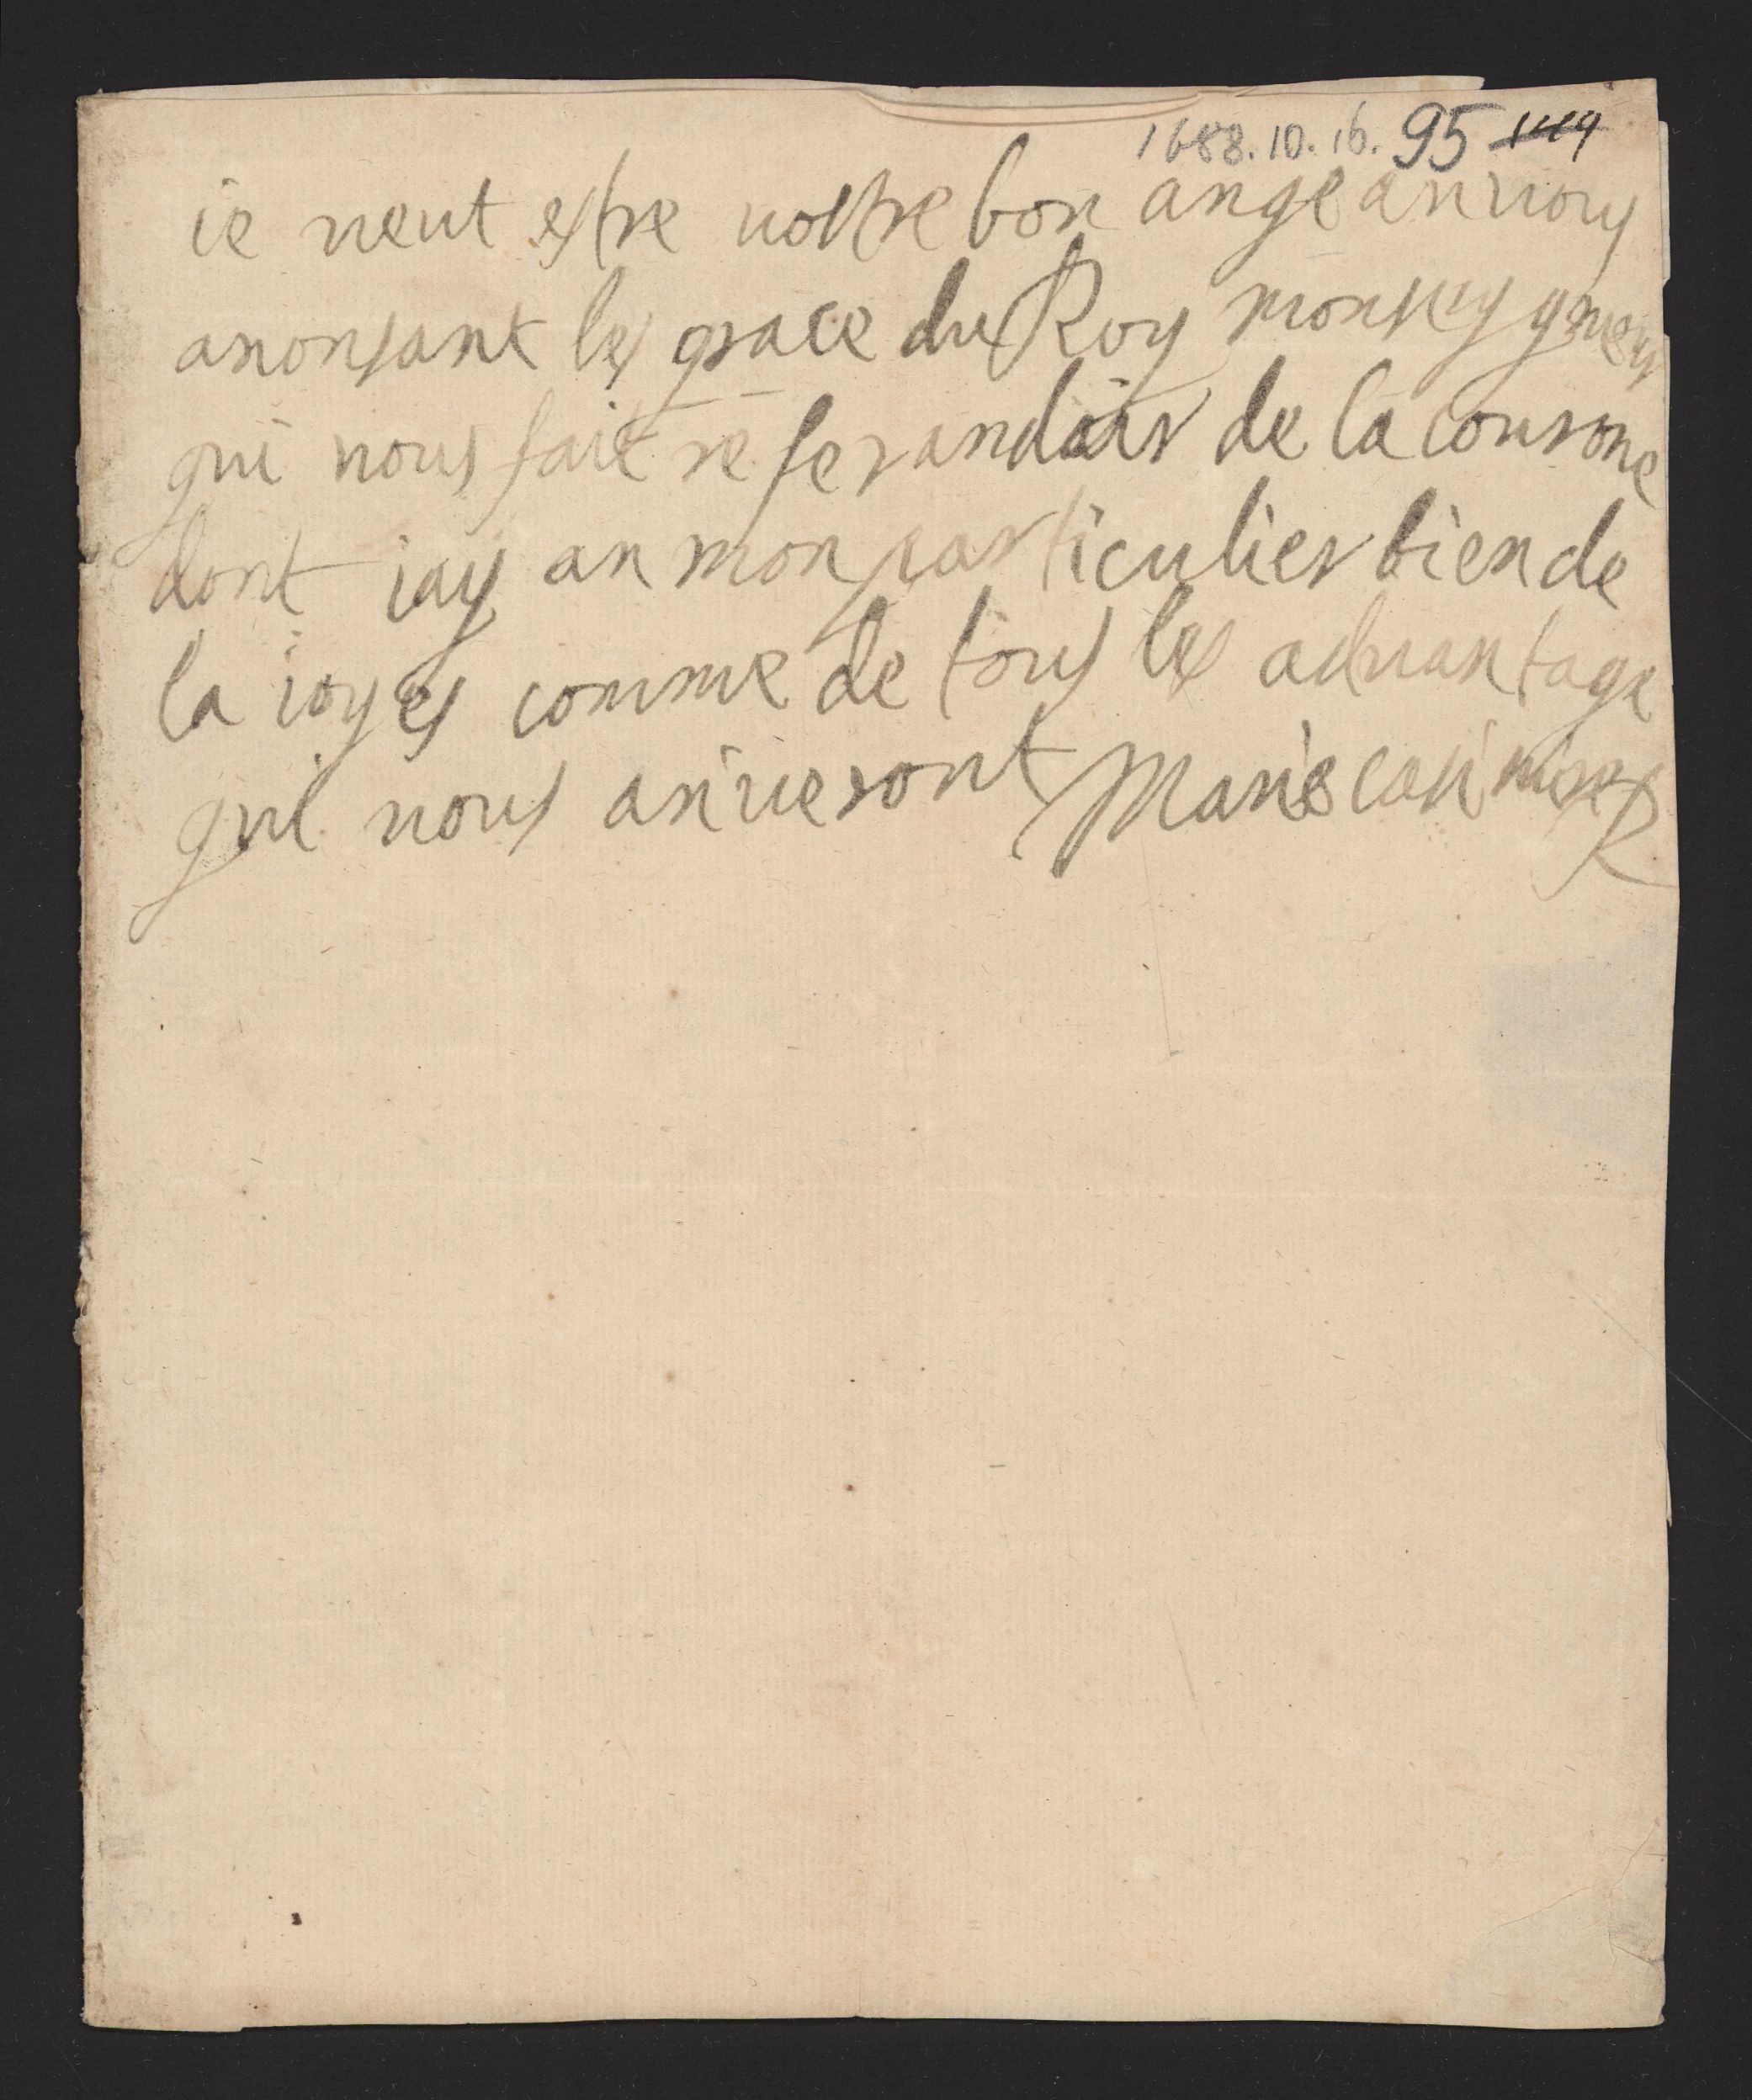 1688.10.16. 95
ie veut estre vostre bon ange an vous
anonsant les grace du Roy monseygneur
qui vous fait referandair de la courone
dont iay an mon particulier bien de
la ioyes comme de tous les advantage
qui vous ariveront Marie casimire R